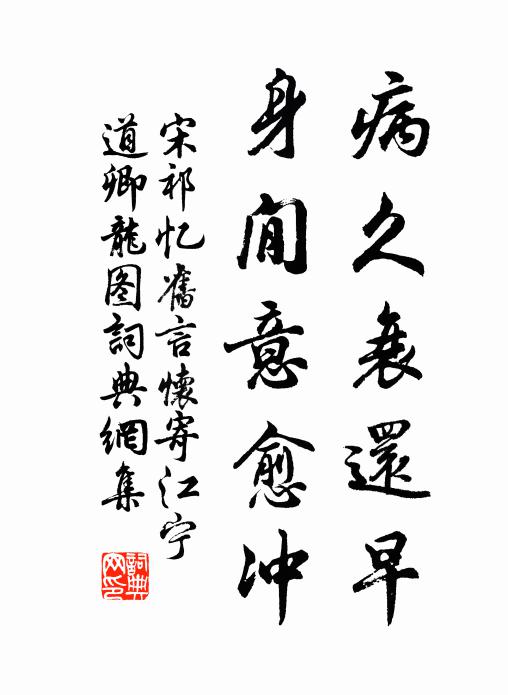 病久衰還早
身間意愈冲
宋祁忆舊言懷寄江宁
道卿龍图詞典網集
詞典
网印